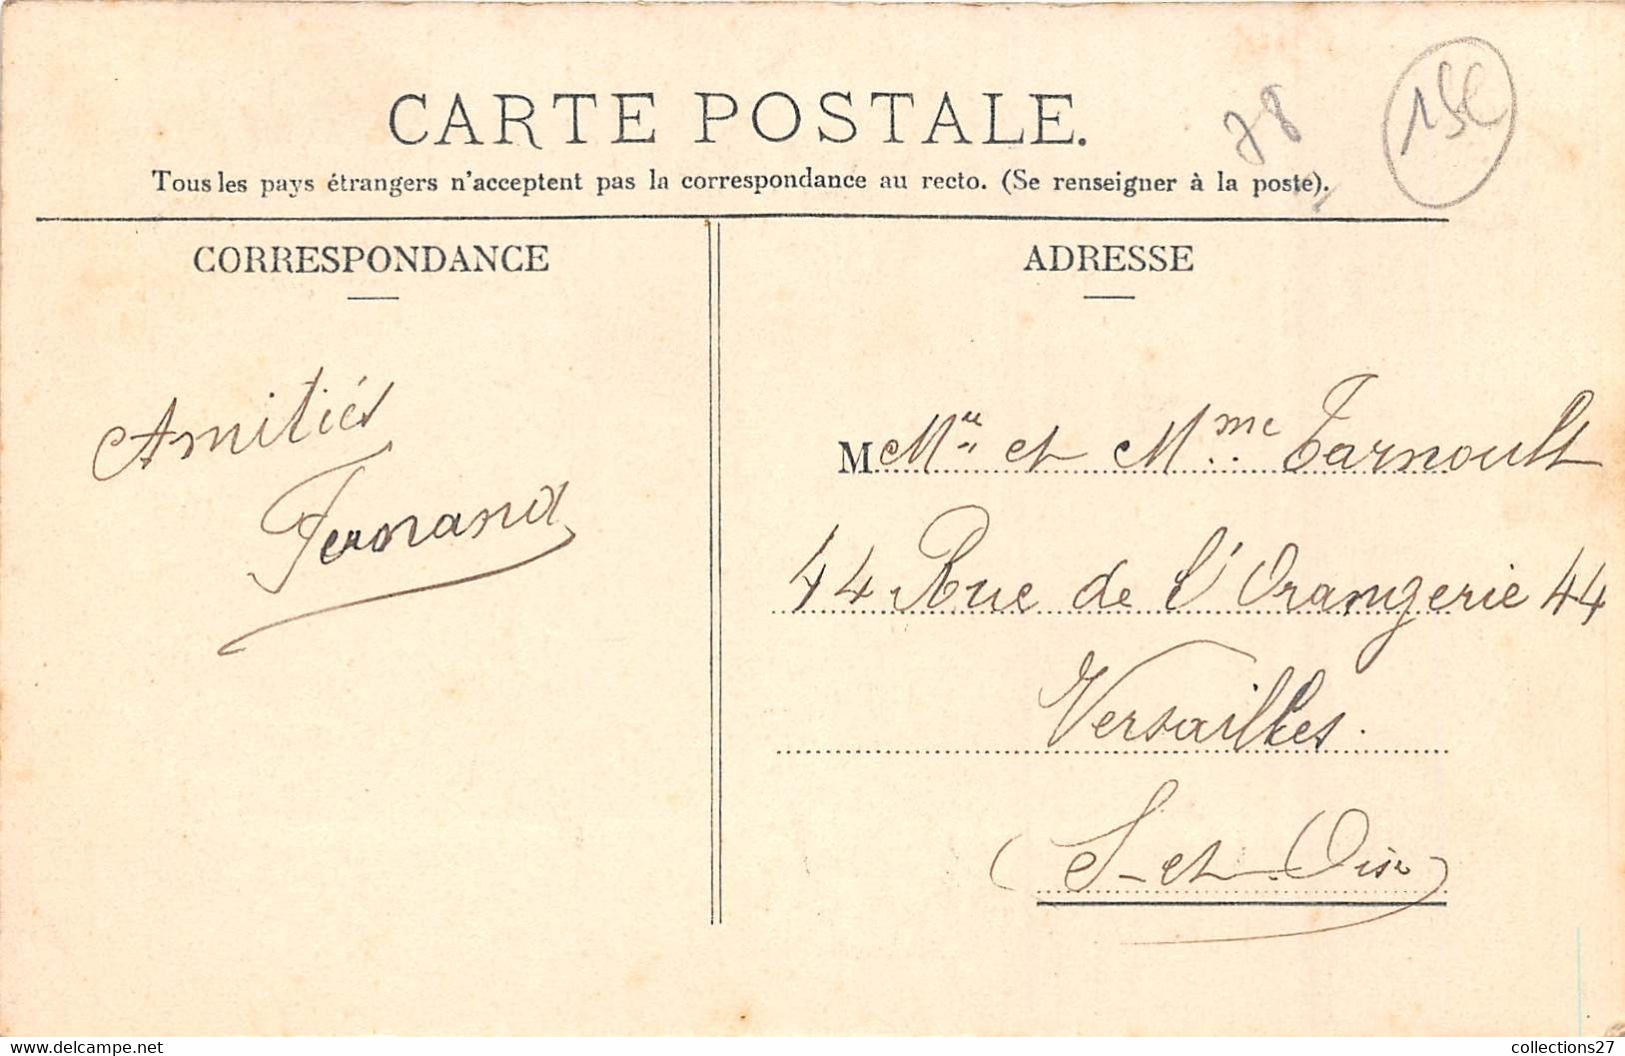 CARTE POSTALE.
Tous les pays étrangers n'acceptent pas la correspondance au recto. (Se renseigner à la poste).
78
15€
CORRESPONDANCE
Amitiés
Fernand
ADRESSE
M Mr et Mme Tarnoult
44 Rue de l'Orangerie 44
Versailles.
(S-et-Oise)
collections27